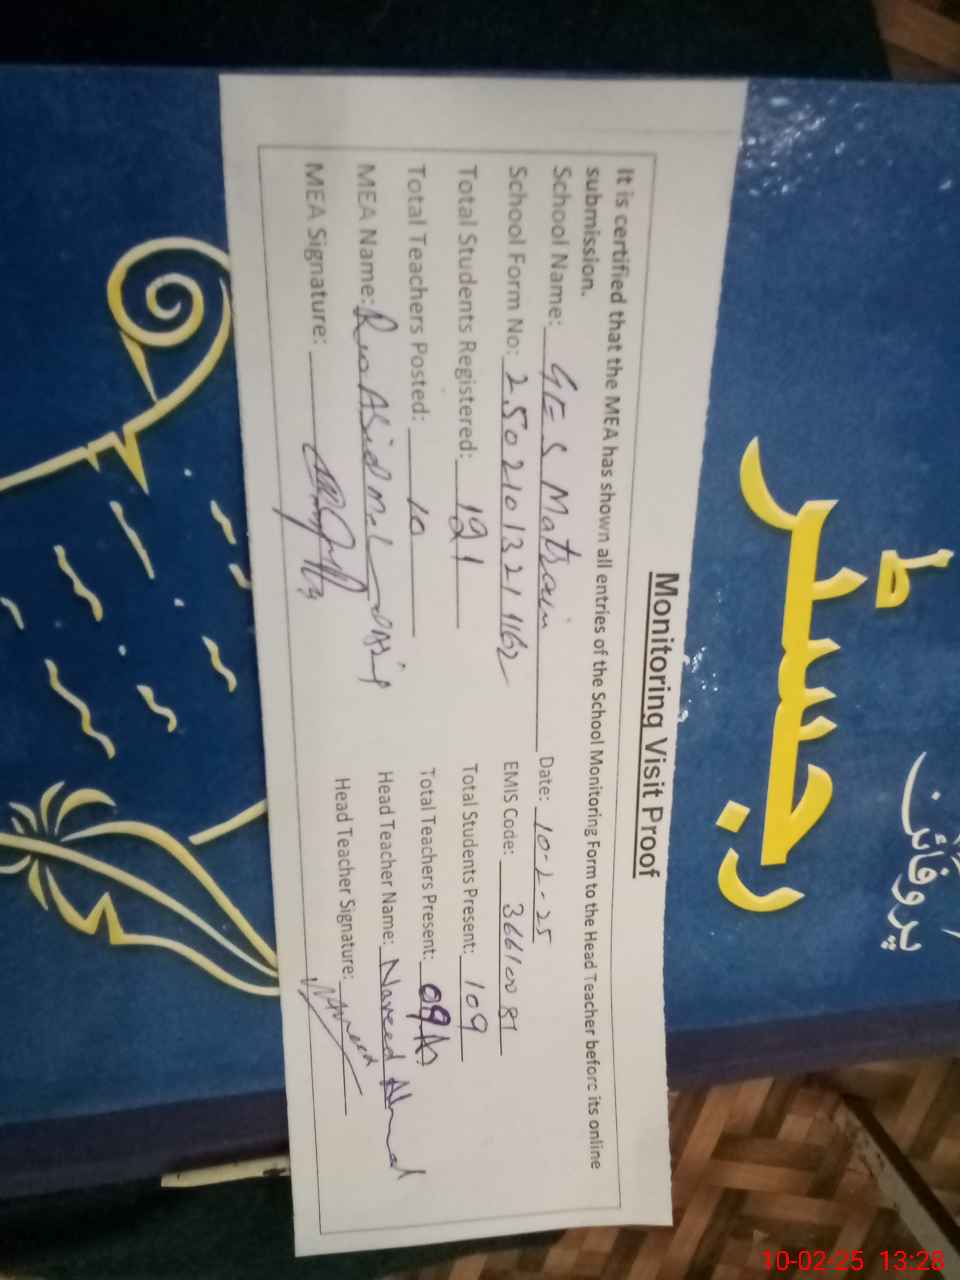 پروفائل
رجسٹر
Monitoring Visit Proof
It is certified that the MEA has shown all entries of the School Monitoring Form to the Head Teacher before its online
submission.
School Name: GES Matrain Date: 10-2-25
School Form No: 2502101321 1162 EMIS Code: 36610081
Total Students Registered: 121 Total Students Present: 109
Total Teachers Posted: 10 Total Teachers Present: 09
MEA Name: Abid Head Teacher Name: Naveed Ahmad
MEA Signature: Head Teacher Signature: Naveed
10-02-25 13:28